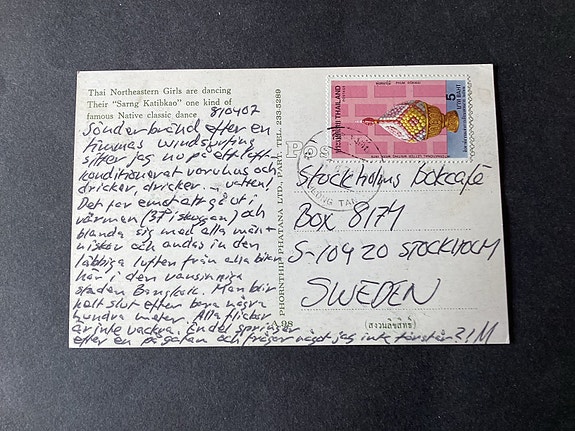 Thai Northeastern Girls are dancing
Their "Sarng Katibkao" one kind of
famous Native classic dance
810402
Sönderbränd efter en
timmas windsurfing
sitter jag nu på ett luft-
konditionerat varuhus och
dricker, dricker... vatten!
Det tar emot att gå ut i
värmen (37° i skuggan) och
blanda sig med alla män-
niskor och andas in den
labbiga luften från alla bilar
här i den vansinniga
staden Bangkok. Man blir
helt slut efter bara några
hundra meter. Alla flickor
är inte vackra. En del springer
efter en på gatan och frågar något jag inte förstår?! M
PHORNTHIP PHATANA LTD., PART. TEL. 233-5289
A 98
POS
ประเทศไทย THAILAND
5
บาท BAHT
Stockholms Bokcafé
Box 8174
S-104 20 STOCKHOLM
SWEDEN
(สงวนลิขสิทธิ์)